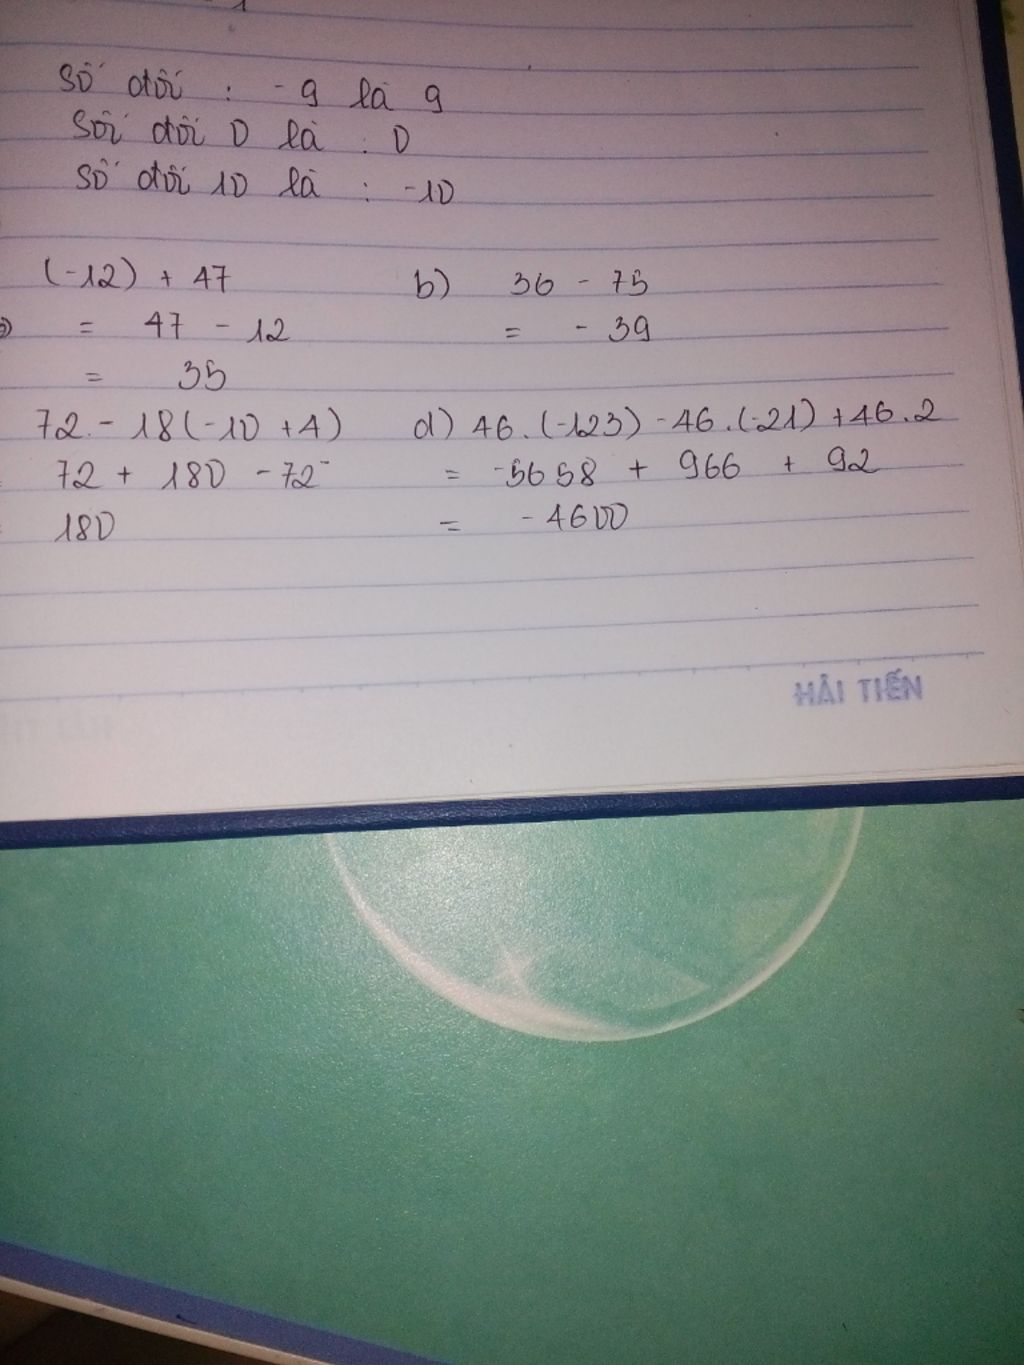 Số đối : -9 là 9
Sối đối 0 là : 0
Số đối 10 là : -10
(-12) + 47
= 47 - 12
= 35
b) 36 - 75
= - 39
72 - 18(-10 + 4)
72 + 180 - 72
180
d) 46.(-123) - 46.(-21) + 46.2
= -5658 + 966 + 92
= - 4600
HẢI TIẾN